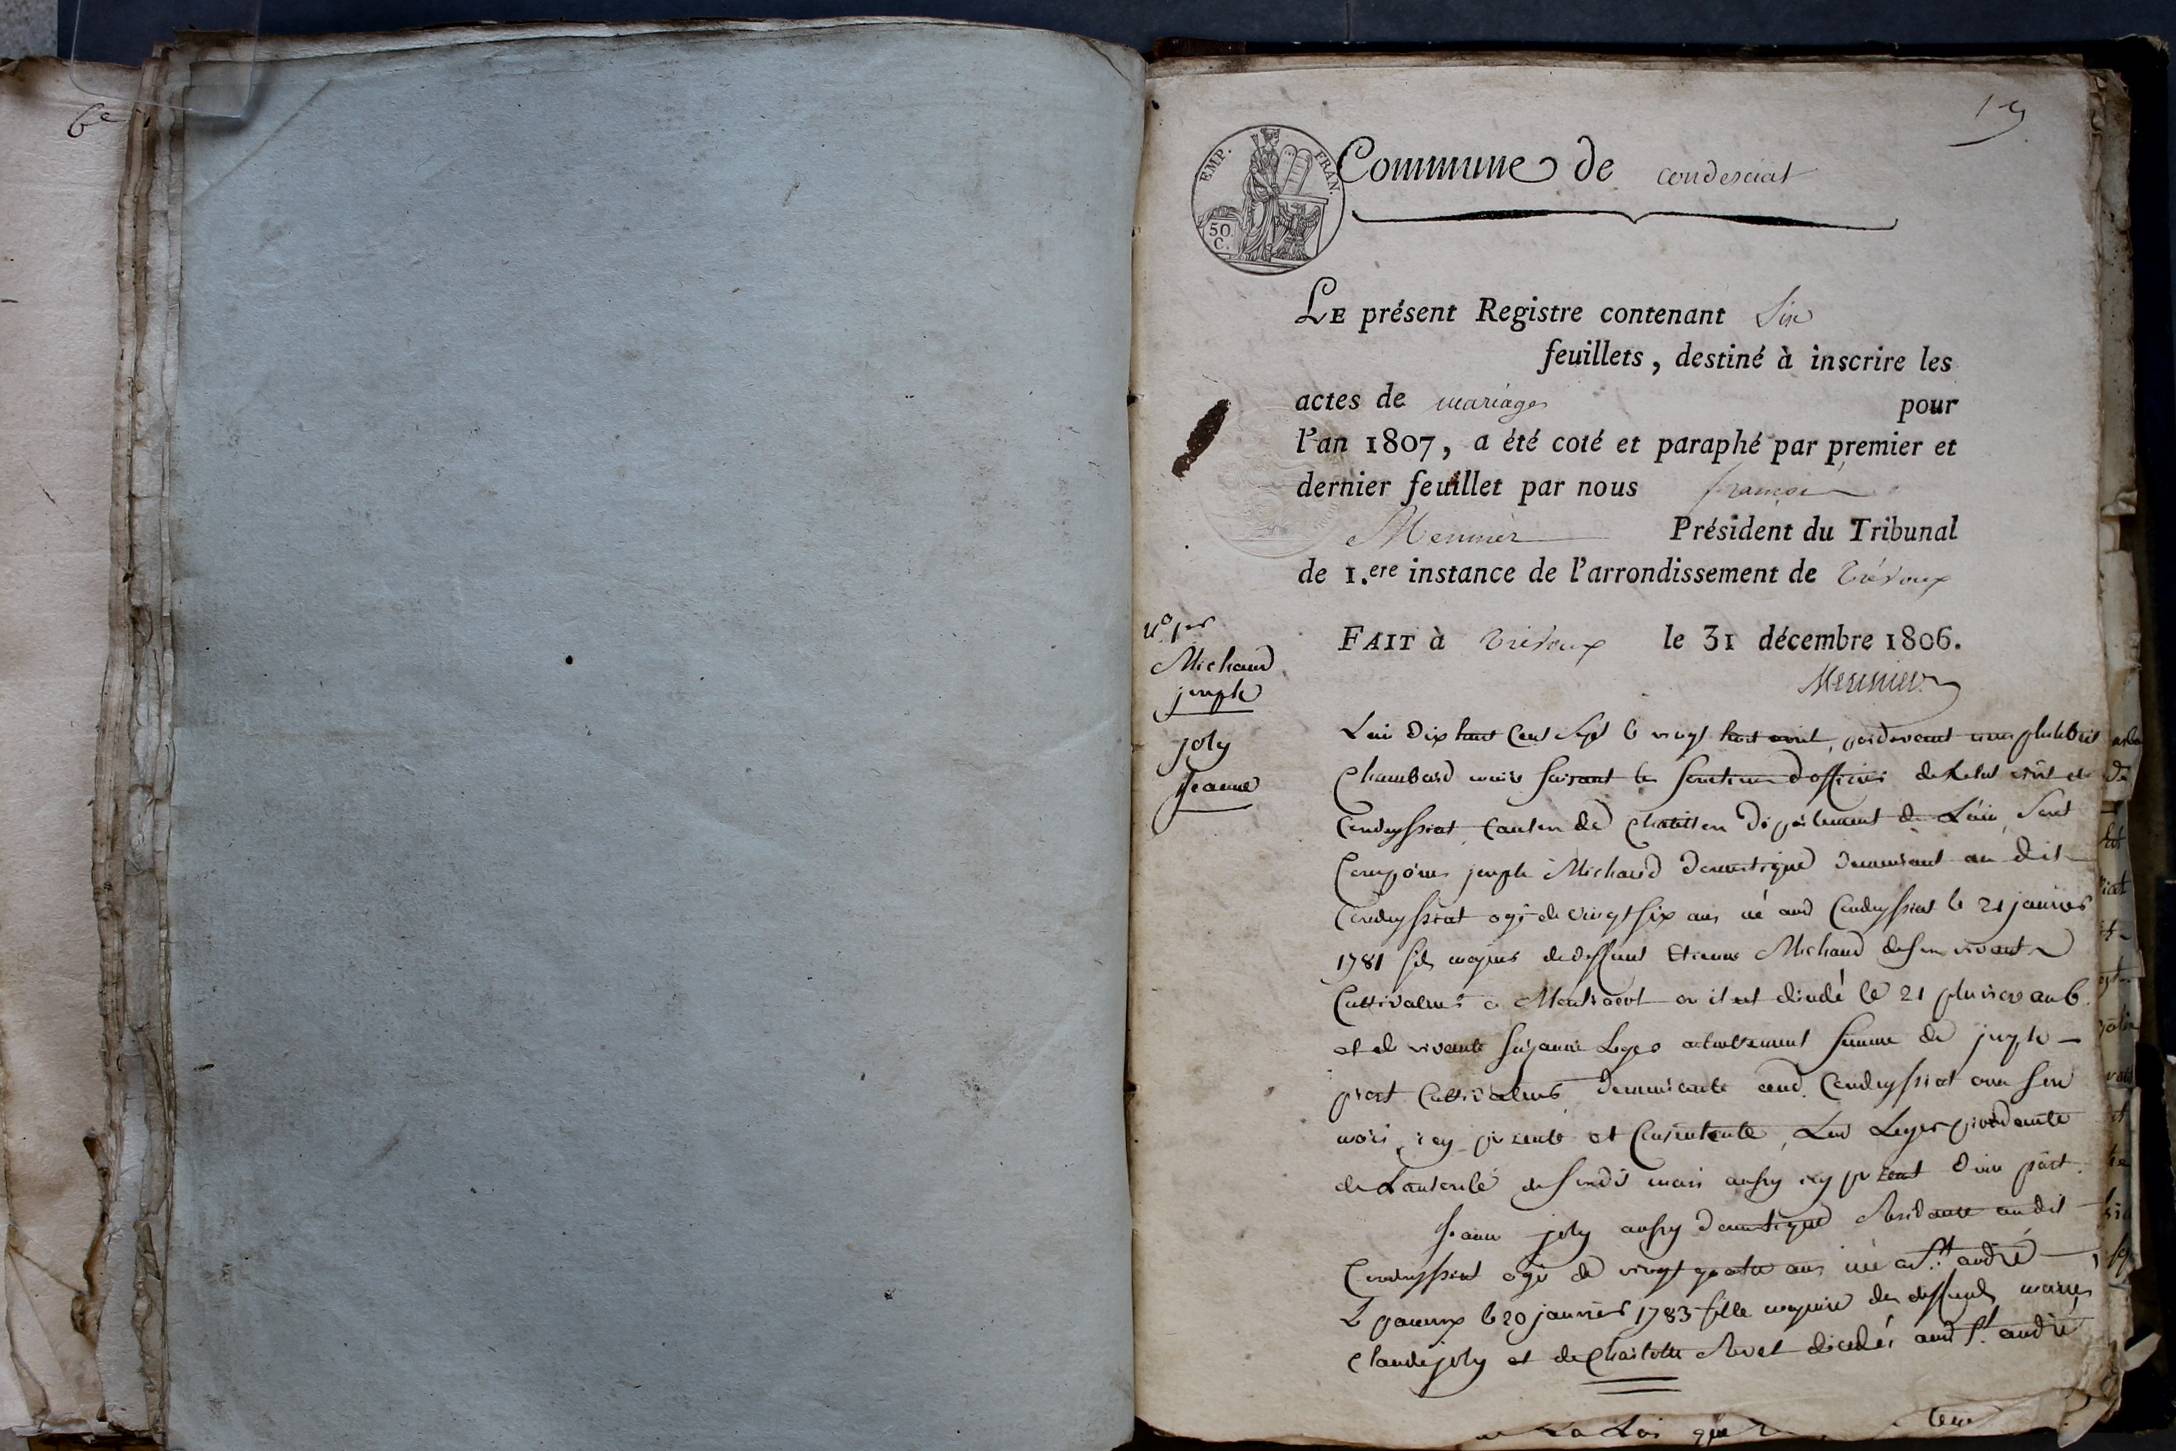 6e
1er
EMP. FRAN.
50 C.
Commune de condesciat
LE présent Registre contenant Six
feuillets, destiné à inscrire les
actes de mariages pour
l'an 1807, a été coté et paraphé par premier et
dernier feuillet par nous françois
Meunier Président du Tribunal
de 1.ere instance de l'arrondissement de trévoux
FAIT à trévoux le 31 décembre 1806.
Meunier
n° 1er
Michaud
joseph
joly
jeanne
L'an dix huit cent sept le vingt huit avril, pardevant nous
Chambard maire faisant les fonctions d'officier de l'etat civil de
Condeyssiat canton de Chatillon département de L'ain, sont
Comparus joseph Michaud domestique demeurant au dit
Condeyssiat agé de vingt six ans né aud Condeyssiat le 21 janvier
1781 fils majeur de deffunt Etienne Michaud de son vivant
Cultivateur a où il est décédé le 21 pluviose an 6
et de vivante Suzanne Leger actuellement femme de joseph
Cultivateur demeurante aud. Condeyssiat avec son
mari, icy presente et Consentente, Lad Leger
de L'autorité de son dit mari aussy icy present d'une part.
jeanne joly aussy domestique Residante audit
Condeyssiat agée de vingt quatre ans née a St. andré
Le panoux le 20 janvier 1783 fille majeure des deffunts mariés
Claude joly et de Charlotte Rivet décédés aud St. andré
La Loi